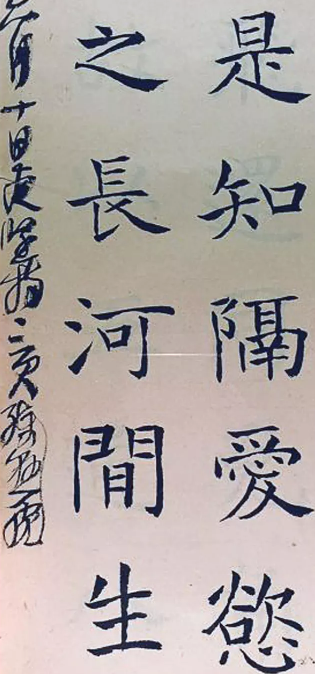 是知隔愛慾
之長河間生
月十日夜